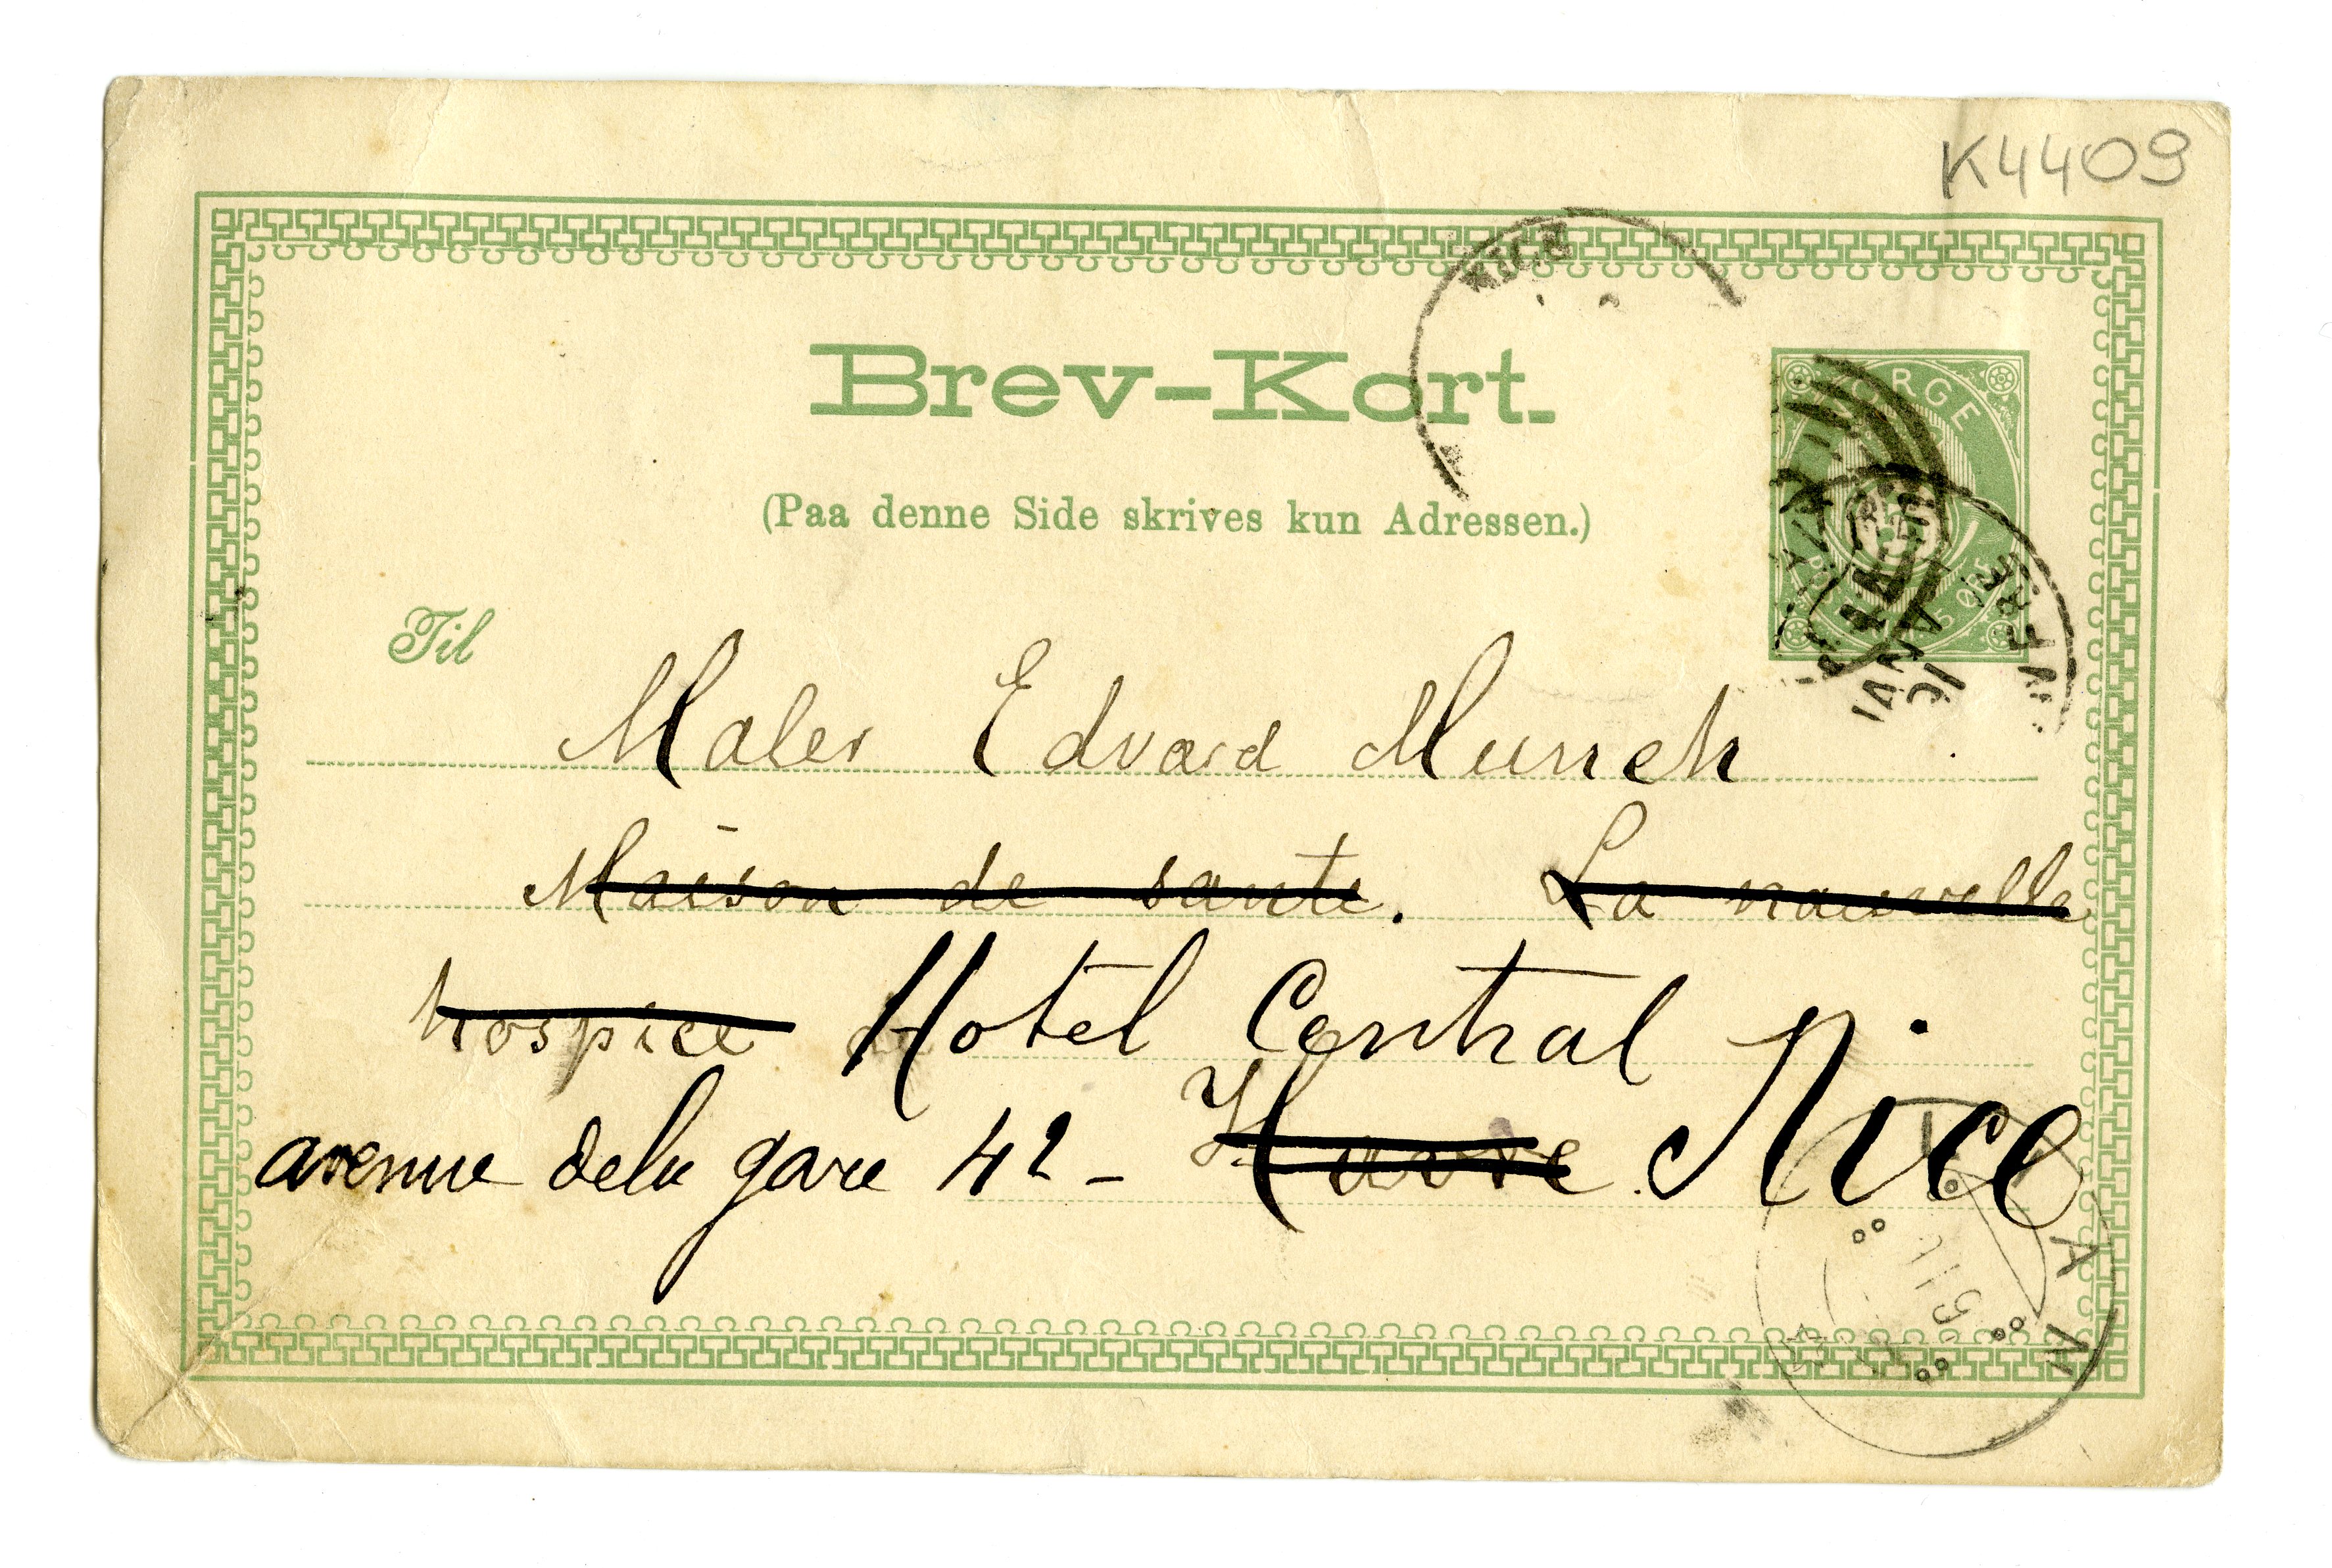 K4409
NICE
Brev-Kort.
NORGE
(Paa denne Side skrives kun Adressen.)
Til
Maler Edvard Munch
Maison de sante. La nouvelle
hospice Hotel Central
avenue dela gare 42 - Havre Nice